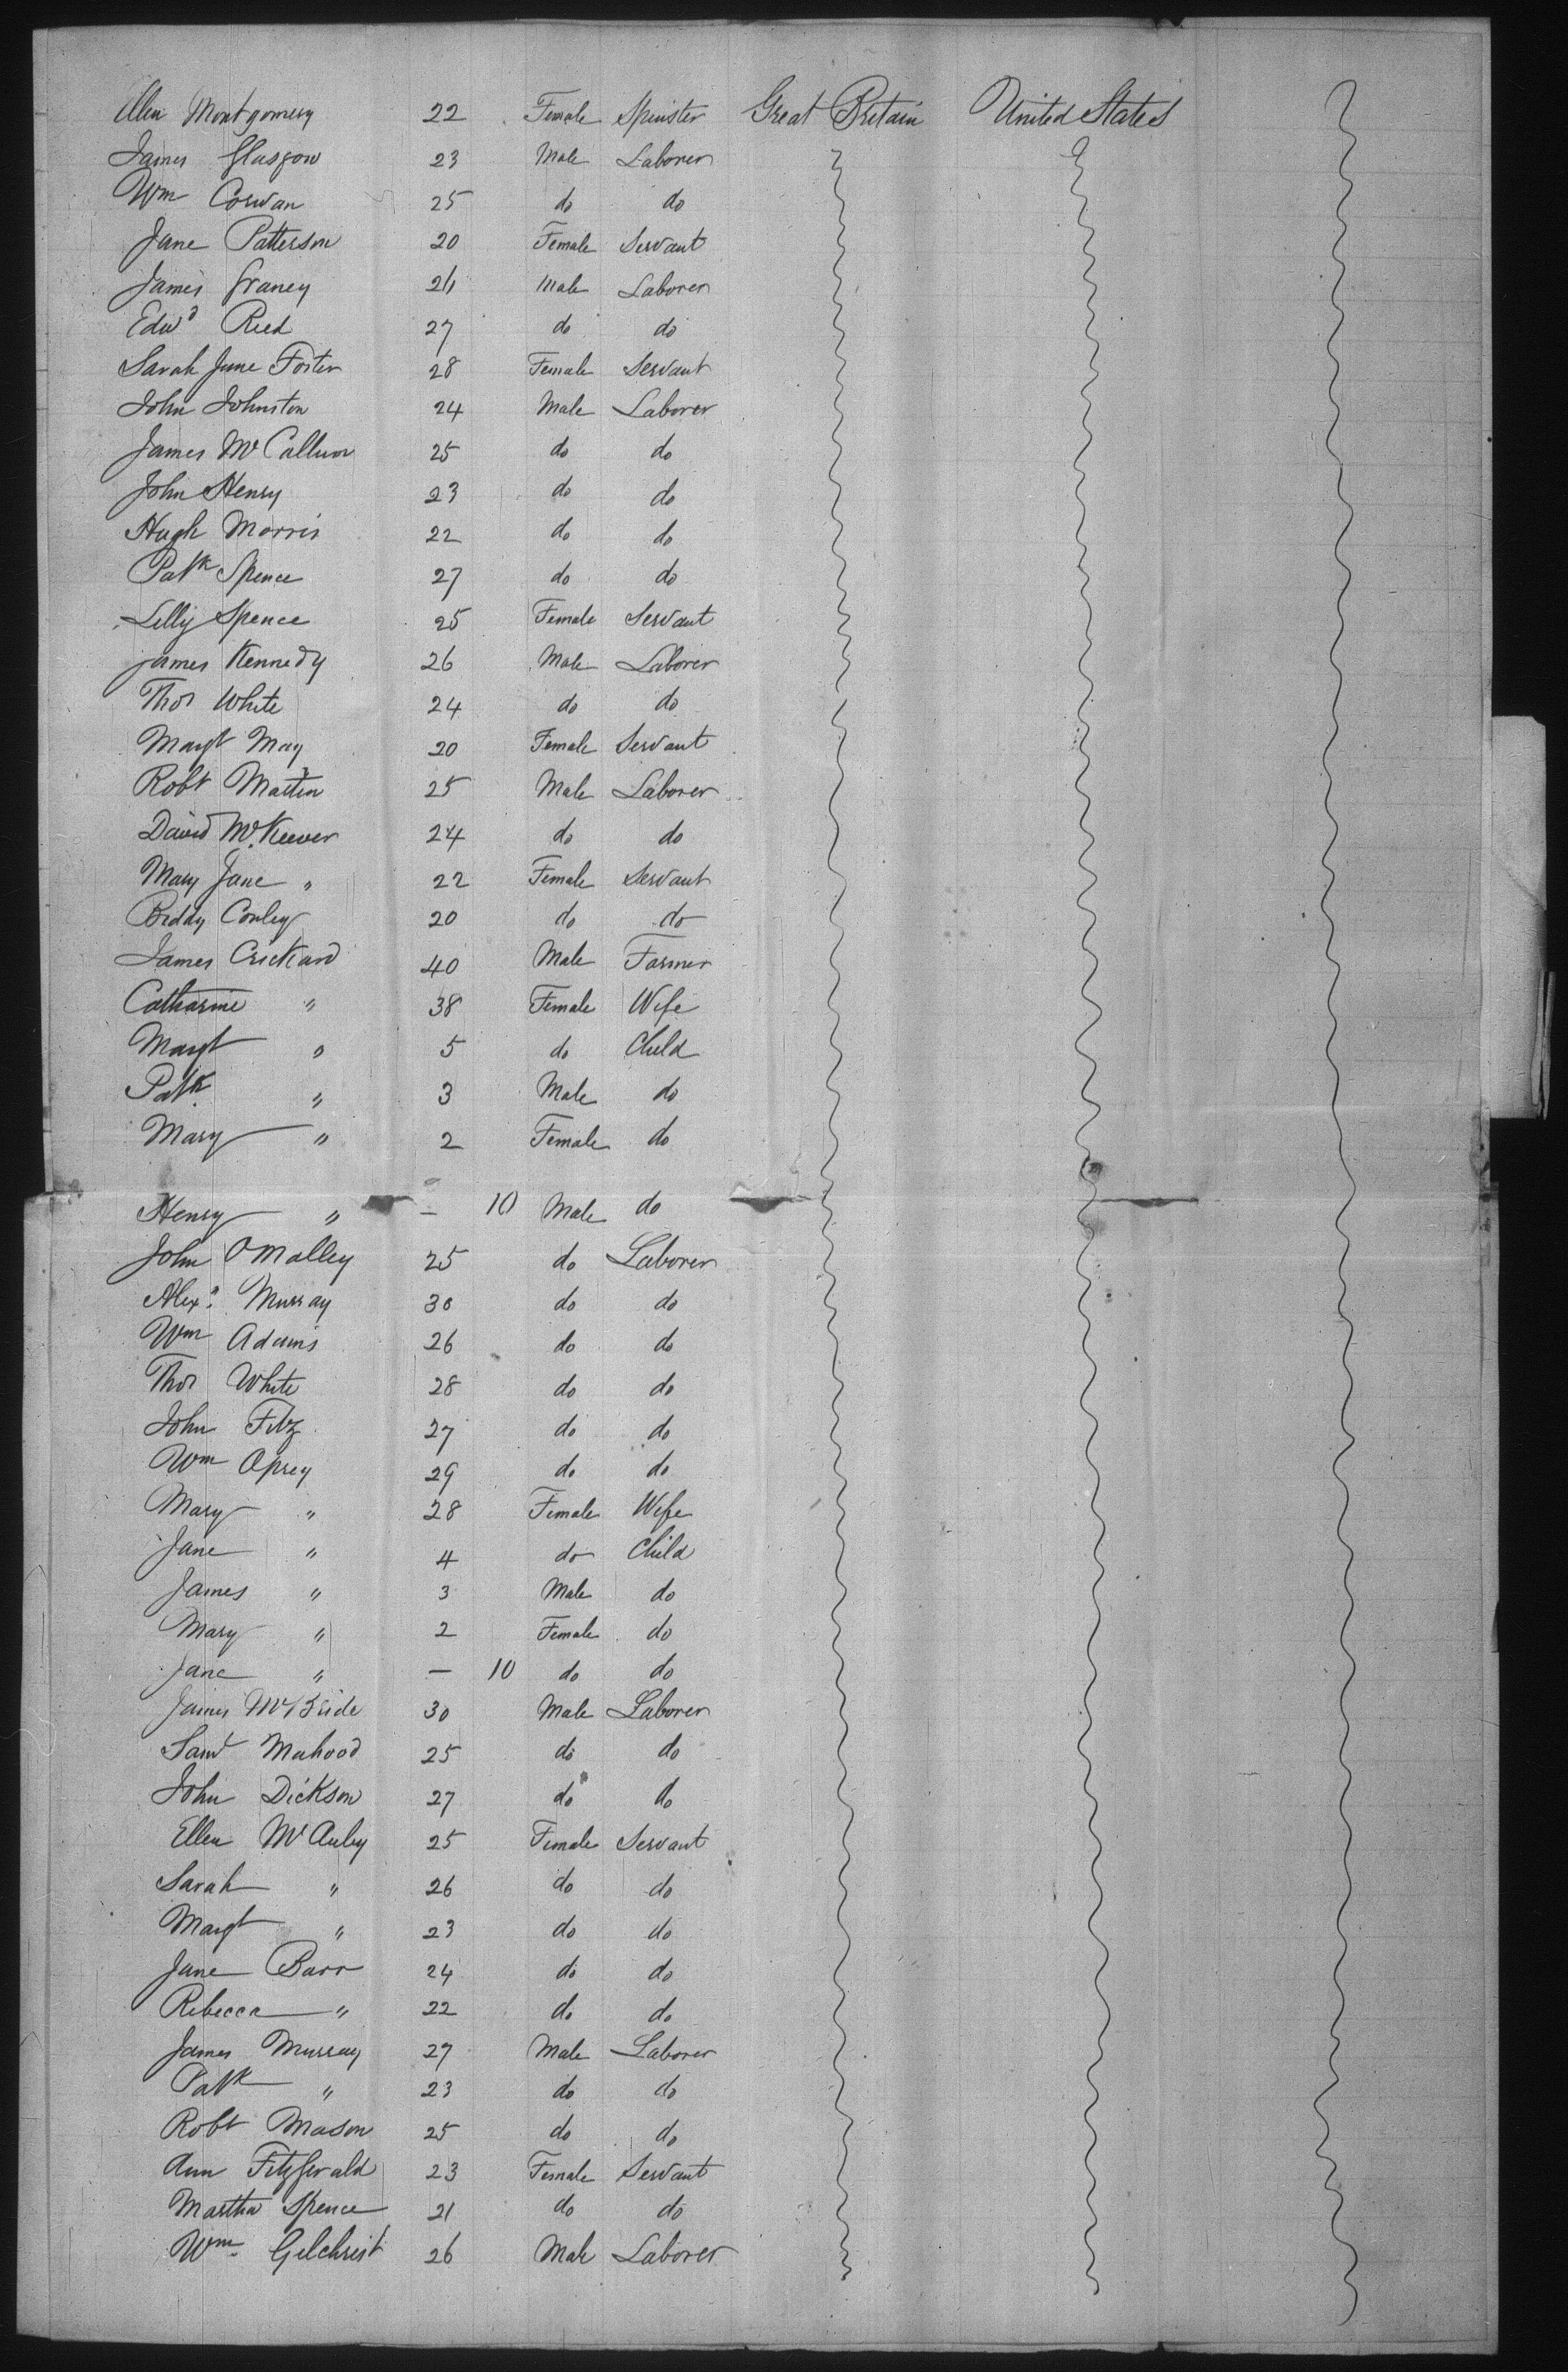 Ellen Montgomery 22 Female Spinster Great Britain United States
James Glasgow 23 Male Laborer
Wm Cowan 25 do do
Jane Patterson 20 Female Servant
James Graney 24 Male Laborer
Edwd Reed 27 do do
Sarah Jane Foster 28 Female Servant
John Johnston 24 Male Laborer
James McCallum 25 do do
John Henry 23 do do
Hugh Morris 22 do do
Patk Spence 27 do do
Lilly Spence 25 Female Servant
James Kennedy 26 Male Laborer
Thos White 24 do do
Margt May 20 Female Servant
Robt Martin 25 Male Laborer
David McKeever 24 do do
Mary Jane " 22 Female Servant
Biddy Conley 20 do do
James Crickard 40 Male Farmer
Catharine " 38 Female Wife
Margt " 5 do Child
Patk " 3 Male do
Mary " 2 Female do
Henry " – 10 Male do
John OMalley 25 do Laborer
Alexr Murray 30 do do
Wm Adams 26 do do
Thos White 28 do do
John Fitz 27 do do
Wm Oprey 29 do do
Mary " 28 Female Wife
Jane " 4 do Child
James " 3 Male do
Mary " 2 Female do
Jane " – 10 do do
James McBride 30 Male Laborer
Saml Mahood 25 do do
John Dickson 27 do do
Ellen McAuley 25 Female Servant
Sarah " 26 do do
Margt " 23 do do
Jane Barr 24 do do
Rebecca " 22 do do
James Murray 27 Male Laborer
Patk " 23 do do
Robt Mason 25 do do
Ann Fitzgerald 23 Female Servant
Martha Spence 21 do do
Wm Gilchrist 26 Male Laborer